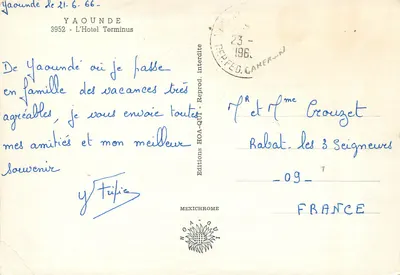 Yaoundé le 21.6.66-
YAOUNDE
3952 - L'Hotel Terminus
De Yaoundé où je passe
en famille des vacances très
agréables, je vous envoie toutes
mes amitiés et mon meilleur
souvenir
Editions HOA-QUI - Reprod. interdite
23 -
196
CAMEROUN
Mr et Mme Crouzet
Rabat. les 3 Seigneurs
- 09 -
FRANCE
MEXICHROME
HOA-QUI